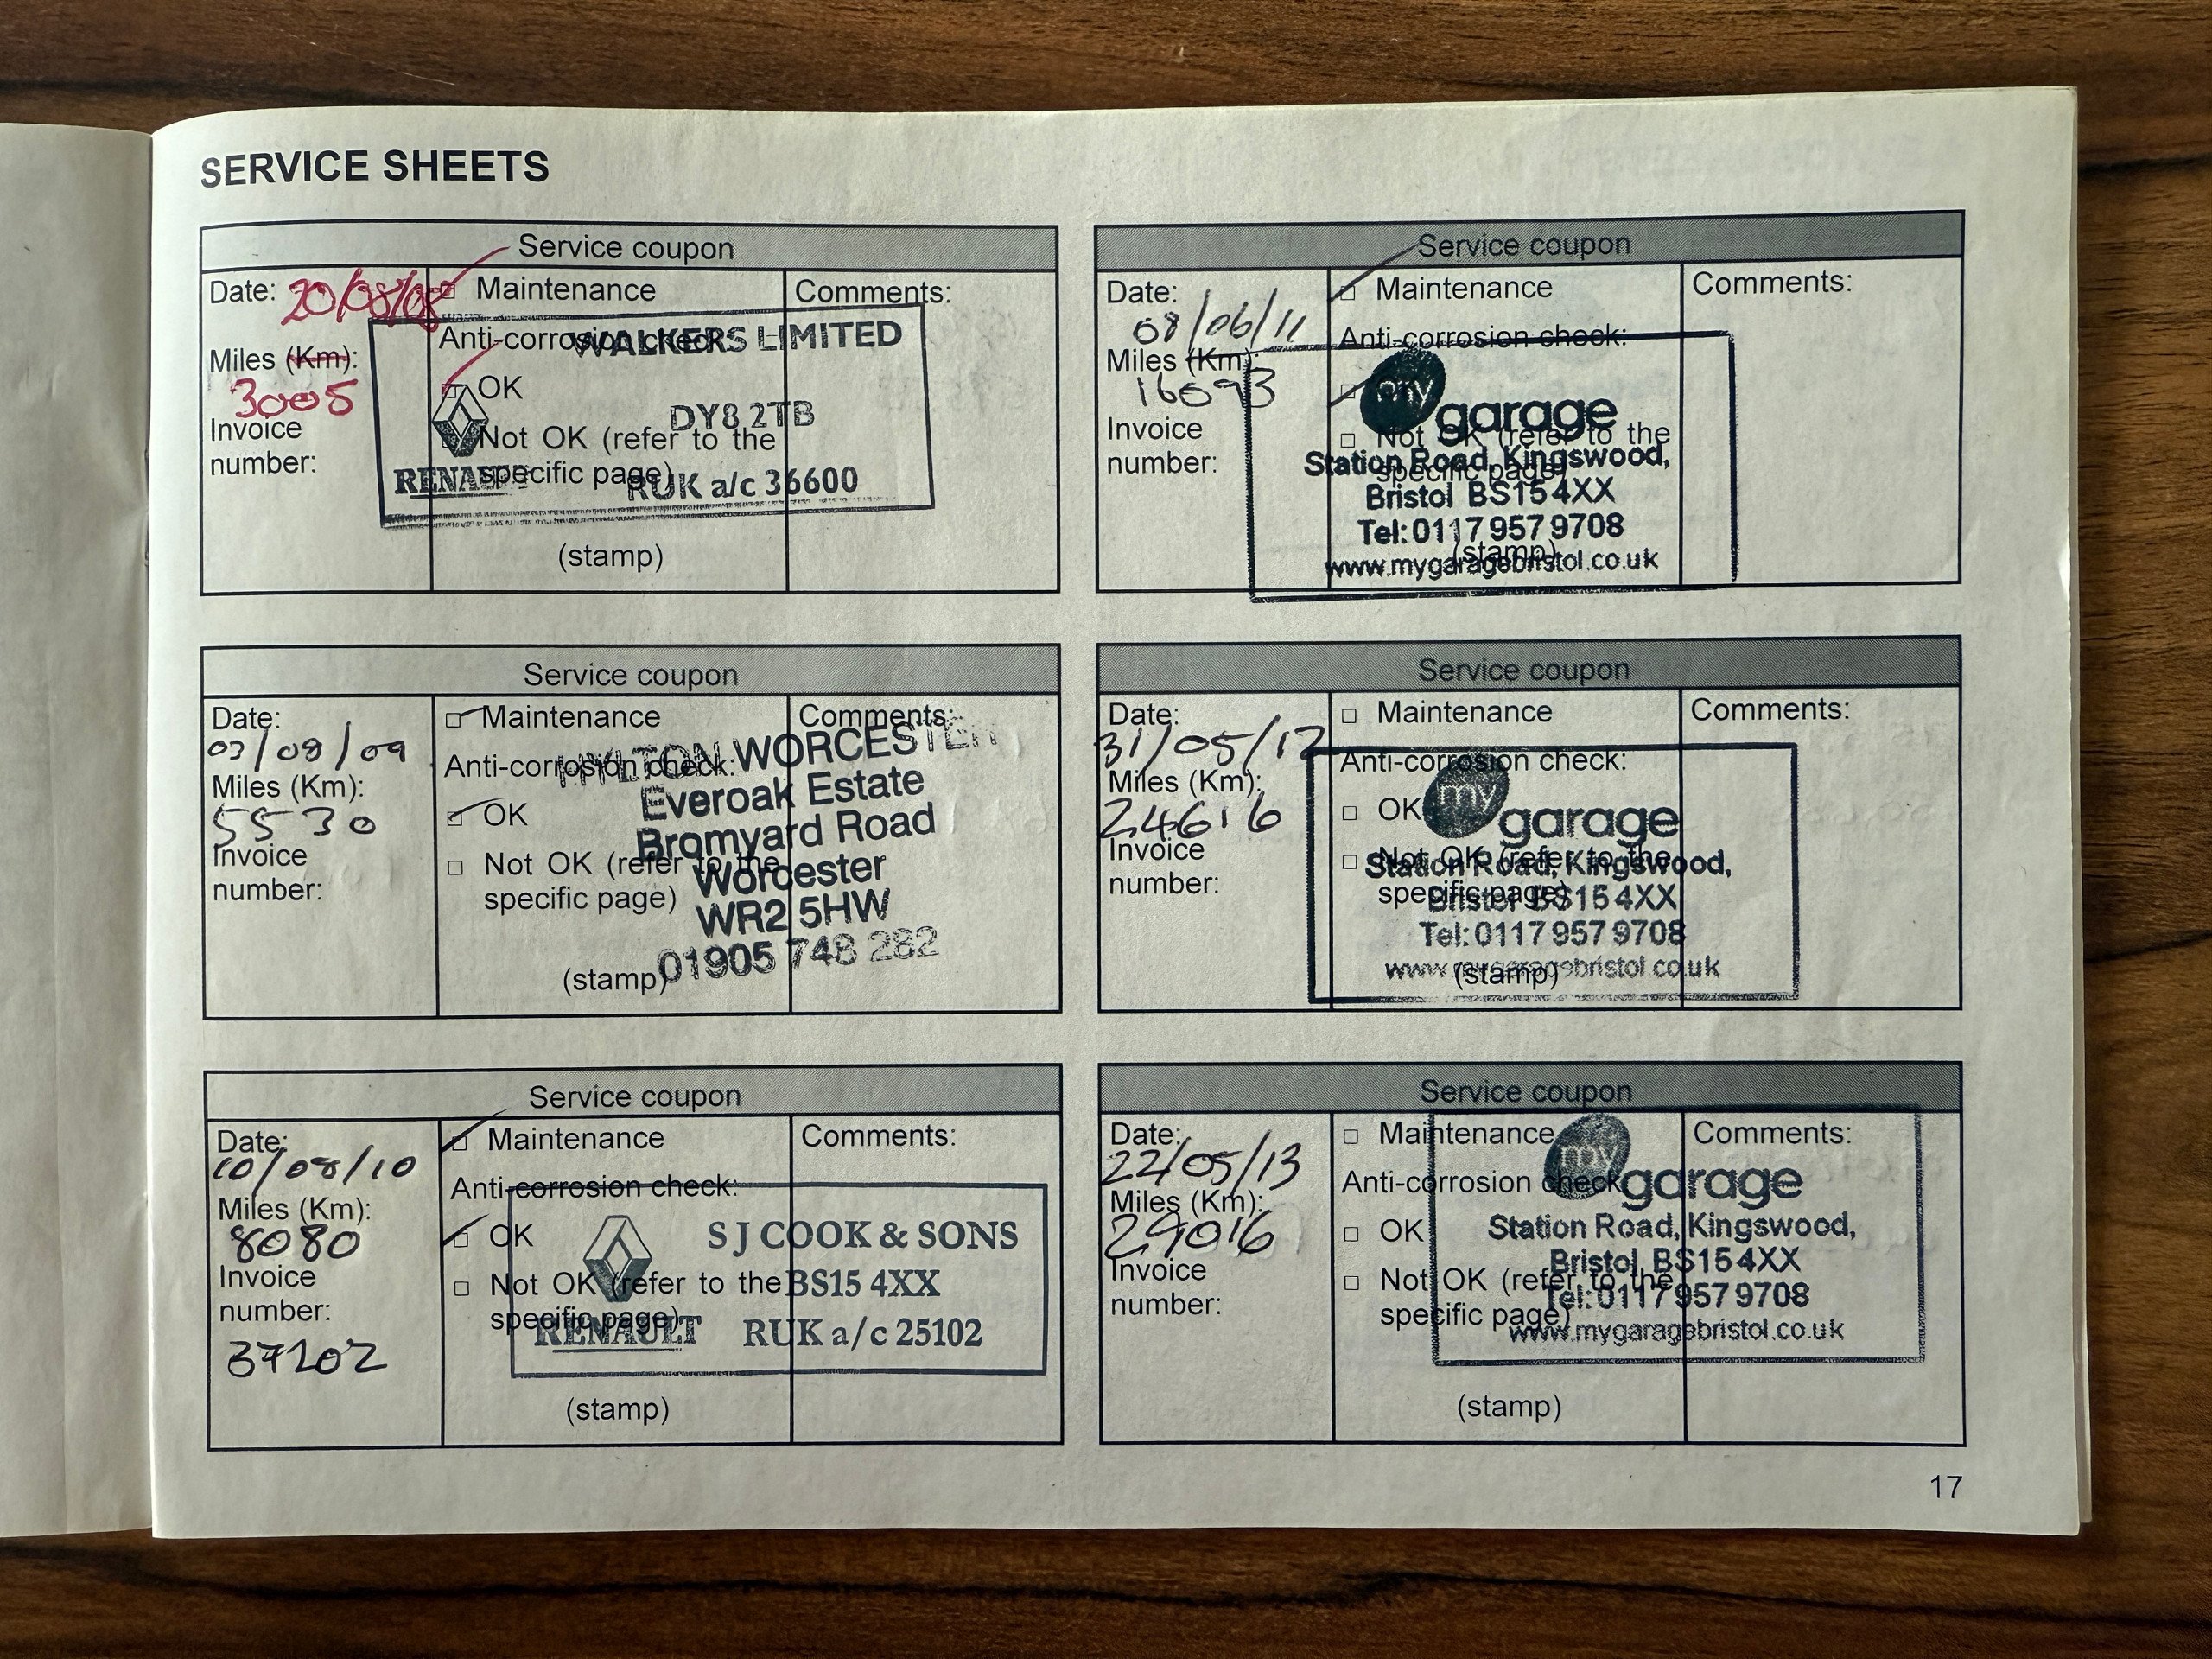 SERVICE SHEETS
Service coupon
Date: 20/08/08
Miles (Km):
3005
Invoice
number:
Maintenance
Anti-corrosion check:
OK
Not OK (refer to the
specific page)
(stamp)
Comments:
WALKERS LIMITED
DY8 2TB
RENAULT
RUK a/c 36600
Service coupon
Date:
03/08/09
Miles (Km):
5530
Invoice
number:
Maintenance
Anti-corrosion check:
OK
Not OK (refer to the
specific page)
(stamp)
Comments:
HYLTON WORCESTER
Everoak Estate
Bromyard Road
Worcester
WR2 5HW
01905 748 282
Service coupon
Date:
10/08/10
Miles (Km):
8080
Invoice
number:
37102
Maintenance
Anti-corrosion check:
OK
Not OK (refer to the
specific page)
(stamp)
Comments:
S J COOK & SONS
BS15 4XX
RENAULT
RUK a/c 25102
Service coupon
Date:
08/06/11
Miles (Km):
16093
Invoice
number:
Maintenance
Anti-corrosion check:
Not OK (refer to the
specific page)
(stamp)
Comments:
my
garage
Station Road, Kingswood,
Bristol BS15 4XX
Tel: 0117 957 9708
www.mygaragebristol.co.uk
Service coupon
Date:
31/05/12
Miles (Km):
24616
Invoice
number:
Maintenance
Anti-corrosion check:
OK
Not OK (refer to the
specific page)
(stamp)
Comments:
my
garage
Station Road, Kingswood,
Bristol BS15 4XX
Tel: 0117 957 9708
www.mygaragebristol.co.uk
Service coupon
Date:
22/05/13
Miles (Km):
29016
Invoice
number:
Maintenance
Anti-corrosion check:
OK
Not OK (refer to the
specific page)
(stamp)
Comments:
my
garage
Station Road, Kingswood,
Bristol BS15 4XX
Tel: 0117 957 9708
www.mygaragebristol.co.uk
17